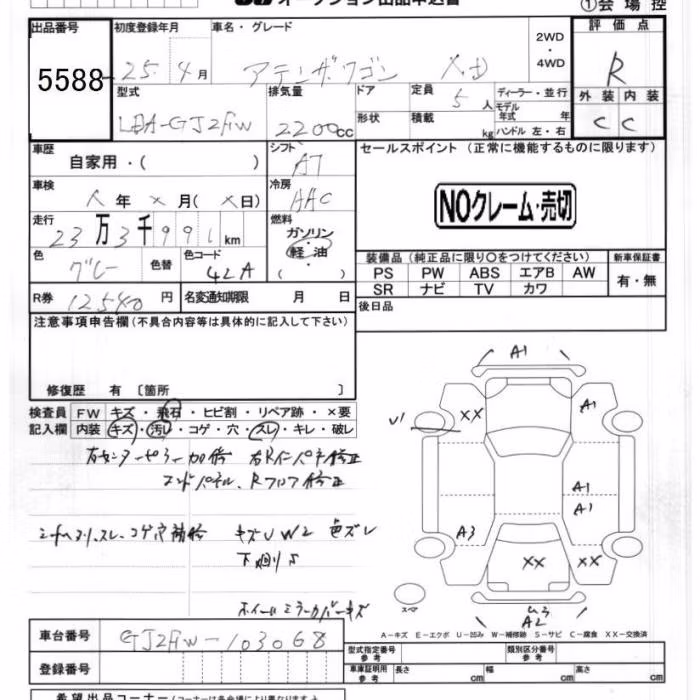 オークション出品申込書
①会場控
出品番号
5588
初度登録年月
25年4月
車名・グレード
アテンザワゴン XD
2WD
・
4WD
評価点
R
型式
LDA-GJ2FW
排気量
2200cc
ドア
形状
定員 5人
積載 kg
ディーラー・並行
モデル年式 年
ハンドル 左・右
外装 内装
C C
車歴
自家用・( )
シフト
AT
セールスポイント (正常に機能するものに限ります)
NOクレーム・売切
車検
X年X月(X日)
冷房
AAC
走行
23万3千991km
燃料
ガソリン
・
軽油
( )
色
グレー
色替
色コード
42A
装備品 (純正品に限り○をつけてください)
新車保証書
PS PW ABS エアB AW
有・無
SR ナビ TV カワ
R券 12540円
名変通知期限 月 日
後日品
注意事項申告欄 (不具合内容等は具体的に記入して下さい)
修復歴 有 〔箇所 〕
検査員
記入欄
FW キズ・飛石・ヒビ割・リペア跡・×要
内装 キズ・汚レ・コゲ・穴・スレ・キレ・破レ
エンドパネル、Rフロア修正
キズU W2 色ズレ
ホイールミラーカバーキズ
A1
XX
A1
U1
A1
A1
A3
XX
XX
スペア
A2
A-キズ E-エクボ U-凹ミ W-補修跡 S-サビ C-腐食 XX-交換済
車台番号
GJ2FW-103068
登録番号
型式指定番号
参考
類別区分番号
参考
車庫証明用
参考
長さ cm
幅 cm
高さ cm
希望出品コーナー